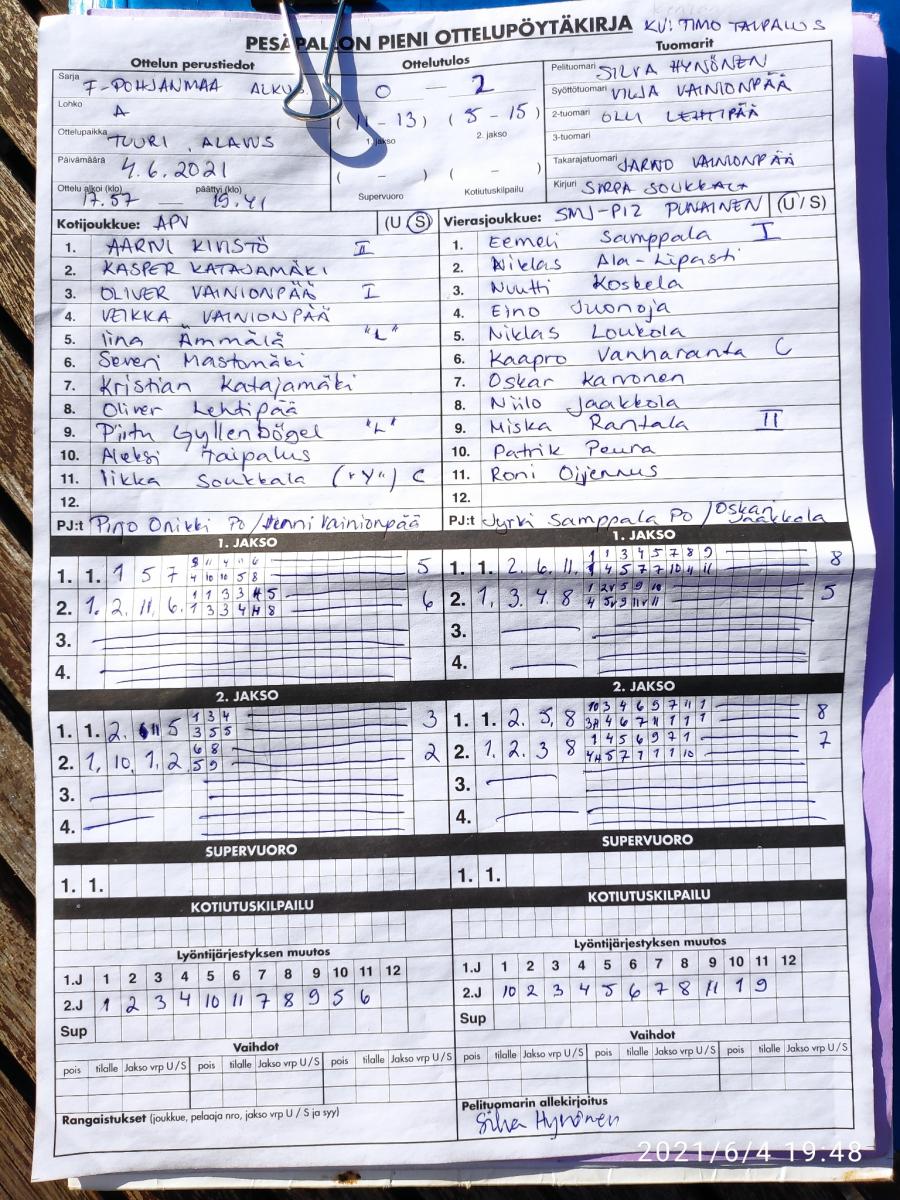 PESÄPALLON PIENI OTTELUPÖYTÄKIRJA KV: TIMO TAIPALUS
Ottelun perustiedot Ottelutulos Tuomarit
Sarja F-POHJANMAA
Lohko A
Ottelupaikka TUURI, ALAVUS
Päivämäärä 4.6.2021
Ottelu alkoi (klo) 17.57 — päättyi (klo) 19.41
0 — 2
(11 - 13) (5 - 15)
1. jakso 2. jakso
( - ) ( - )
Supervuoro Kotiutuskilpailu
Pelituomari SILVA HYNÖNEN
Syöttötuomari VILJA VAINIONPÄÄ
2-tuomari OLLI LEHTIPÄÄ
3-tuomari
Takarajatuomari JARNO VAINIONPÄÄ
Kirjuri SIRPA SOUKKALA
Kotijoukkue: APV (U / S)
1. AARNI KIVISTÖ II
2. KASPER KATAJAMÄKI
3. OLIVER VAINIONPÄÄ I
4. VEIKKA VAINIONPÄÄ
5. Iina Ämmälä "L"
6. Severi Mastomäki
7. Kristian Katajamäki
8. Oliver Lehtipää
9. Piitu Gyllenbögel "L"
10. Aleksi Taipalus
11. Iikka Soukkala ("Y") C
12.
PJ:t Pirjo Onikki PO / Henni Vainionpää
Vierasjoukkue: SMJ-P12 PUNAINEN (U / S)
1. Eemeli Samppala I
2. Niklas Ala-Lipasti
3. Nuutti Koskela
4. Eino Juonoja
5. Niklas Loukola
6. Kaapro Vanharanta C
7. Oskar Karvonen
8. Niilo Jaakkola
9. Miska Rantala II
10. Patrik Peura
11. Roni Oijennus
12.
PJ:t Jyrki Samppala PO / Oskari Jaakkola
1. JAKSO
1. 1. 1 5 7 5
2. 1. 2. 11. 6. 6
3.
4.
1. JAKSO
1. 1. 2. 6. 11. 8
2. 1. 3. 4. 8 5
3.
4.
2. JAKSO
1. 1. 2. 5 1 3 4 3
3 5 5
2. 1, 10, 1, 2 6 8 2
5 9
3.
4.
2. JAKSO
1. 1. 2. 5, 8 10 3 4 6 9 7 11 1 8
2. 1. 2. 3 8 1 4 5 6 9 7 1 7
3.
4.
SUPERVUORO SUPERVUORO
1. 1. 1. 1.
KOTIUTUSKILPAILU KOTIUTUSKILPAILU
Lyöntijärjestyksen muutos
1.J 1 2 3 4 5 6 7 8 9 10 11 12
2.J 1 2 3 4 10 11 7 8 9 5 6
Sup
Lyöntijärjestyksen muutos
1.J 1 2 3 4 5 6 7 8 9 10 11 12
2.J 10 2 3 4 5 6 7 8 11 1 9
Sup
Vaihdot
pois tilalle Jakso vrp U / S pois tilalle Jakso vrp U / S pois tilalle Jakso vrp U / S
Vaihdot
pois tilalle Jakso vrp U / S pois tilalle Jakso vrp U / S pois tilalle Jakso vrp U / S
Rangaistukset (joukkue, pelaaja nro, jakso vrp U / S ja syy)
Pelituomarin allekirjoitus
Silva Hynönen
2021/6/4 19:48